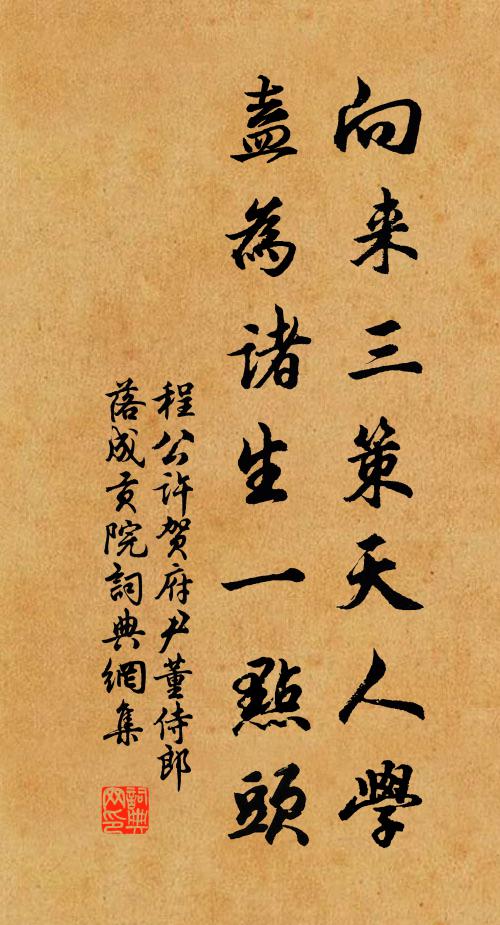 向来三策天人學
盍為诸生一點頭
程公许贺府尹董侍郎
落成贡院詞典網集
詞典网印